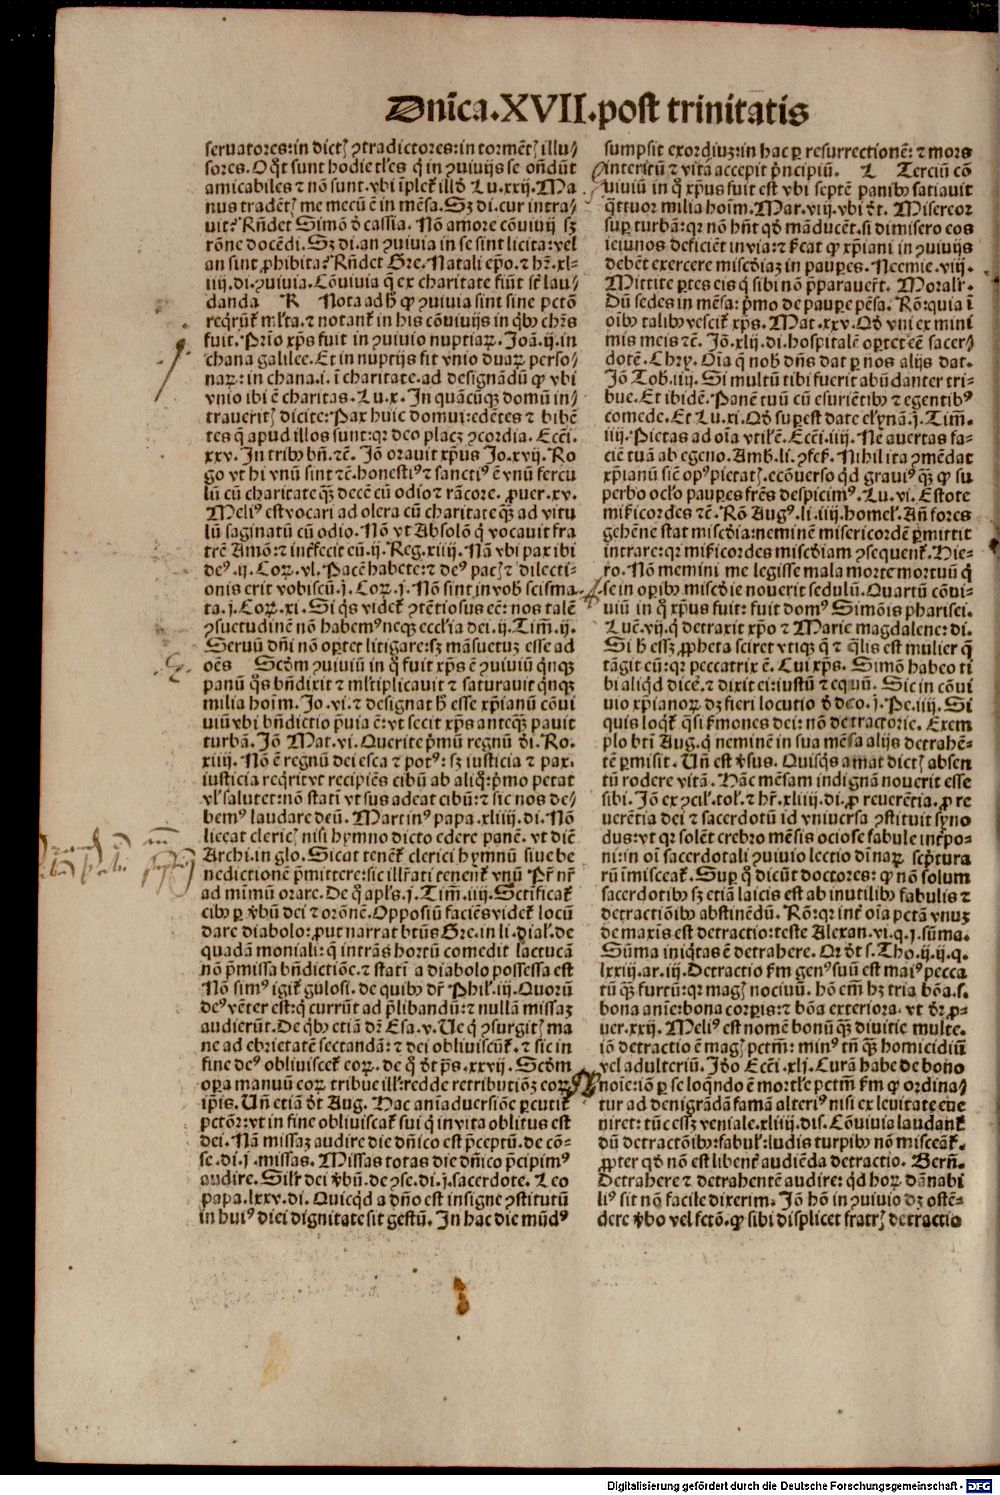 Dn̄ica.XVII.post trinitatis
seruatores:in dictꝭ ꝯtradictores:in tormētꝭ illu/
sores.Oꝙt sunt hodie tl̓es q̇ in ꝯuiuijs se on̄dūt
amicabiles ⁊ nō sunt.vbi īpletᷣ illḋ Lu.xxij.Ma
nus tradētꝭ me mecū ē in mēsa.Sꝫ di.cur intra/
uit? Rn̄det Simō ḋ cassia. Nō amore cōuiuij sꝫ
rōne docēdi.Sꝫ di.an ꝯuiuia in se sint licita:vel
an sint ꝓhibita? Rn̄det Gre.Natali ep̄o.⁊ hr̄.xl-
iiij.di.ꝯuiuia.Cōuiuia q̄ ex charitate fiūt sūt lau/
danda R Nota ad h̓ ꝙ ꝯuiuia sint sine pctō
reqr̓untᷣ ml̓ta.⁊ notantᷣ in his cōuiuijs in qḃꝰ chr̄s
fuit.Prīo xp̄s fuit in ꝯuiuio nuptiaꝝ.Joā.ij.in
chana galilee.Et in nuptijs fit vnio duaꝝ perso/
naꝝ:in chana.i.ī charitate.ad designādū ꝙ vbi
vnio ibi ē charitas.Lu.x.In quācūqꝫ domū in/
traueritꝭ dicite:Pax huic domui:edētes ⁊ bibē
tes q̄ apud illos sunt:qꝛ deo placꝫ ꝯcordia.Ecc̄i.
xxv.In tribꝰ bn̄.⁊c̄. Jō orauit xp̄us Jo.xvij.Ro
go vt hi vnū sint ⁊c̄.honestiꝰ⁊ sanctiꝰ ē vnū fercu
lū cū charitate qꝫ̄ decē cū odio⁊ rācore.ꝓuer.xv.
Meliꝰ est vocari ad olera cū charitate qꝫ̄ ad vitu
lū saginatū cū odio.Nō vt Absolō q̇ vocauit fra
trē Amō:⁊ intᷣfecit eū.ij.Reg.xiiij.Nā vbi pax ibi
deꝰ.ij.Coꝝ.vl.Pacē habete:⁊ deꝰ pacꝭ⁊ dilecti-
onis erit vobiscū.j.Coꝝ.j.Nō sint in vob̓ scisma-
ta.j.Coꝝ.xi.Si qs̓ videtᷣ ꝯtētiosus eē:nos talē
ꝯsuetudinē nō habemꝰneqꝫ eccl̓ia dei.ij.Tim̄.ij.
Seruū dn̄i nō oꝑtet litigare:sꝫ māsuetuꝫ esse ad
oēs Scd̓m ꝯuiuiū in q̊ fuit xp̄s ē ꝯuiuiū q̇nqꝫ
panū qs̓ bn̄dixit ⁊ ml̓tiplicauit ⁊ saturauit q̇nqꝫ
milia hoīm.Jo.vi.⁊ designat h̓ esse xp̄ianū cōui
uiū vbi bn̄dictio p̄uia ē:vt fecit xp̄s anteqꝫ̄ pauit
turbā.Jō Mat.vi.Querite p̄mū regnū ḋi.Ro.
xiiij.Nō ē regnū dei esca ⁊ potꝰ:sꝫ iusticia ⁊ pax.
iusticia reqr̓it vt recipiēs cibū ab aliq̊:p̄mo petat
vl̓ salutet:nō statī vt sus adeat cibū:⁊ sic nos de/
bemꝰ laudare deū.Martinꝰ papa.xliiij.di.Nō
liceat clericꝭ nisi hymno dicto edere panē.vt diē
Archi.in glo.Sicat tenētᷣ clerici hymnū siue be
nedictionē p̄mittere:sic illr̄ati tenentᷣ vnū Pr̄ nr̄
ad mīmū orare.De q̊ apl̓s.j.Tim̄.iiij.Sctīficatᷣ
cibꝰ ꝑ ṽbū dei ⁊ orōnē.Oppositū faciēs videtᷣ locū
dare diabolo:ꝓut narrat btūs Gre.in li.dial̓.de
quadā moniali:q̄ intrās hortū comedit lactucā
nō p̄missa bn̄dictiōe.⁊ statī a diabolo possessa est
Nō simꝰ igitᷣ gulosi.de quibꝰ dr̄ Phil̓.iij.Quorū
deꝰ vēter est:q̇ currūt ad p̄libandū:⁊ nullā missaꝫ
audierūt.De qḃꝰ etiā dr̄ Esa.v.Ue q̇ ꝯsurgitꝭ ma
ne ad ebrietatē sectandā:⁊ dei obliuiscūtᷣ.⁊ sic in
fine deꝰ obliuiscetᷣ eoꝝ.de q̊ ḋt p̄s.xxvij.Scd̓m
oꝑa manuū eoꝝ tribue ill̓:redde retributiōꝫ eoꝝ
ip̄is.Un̄ etiā ḋt Aug.Hac anīaduersiōe ꝑcutitᷣ
pctōr:vt in fine obliuiscatᷣ sui q̇ in vita oblitus est
dei.Nā missaꝫ audire die dn̄ico est p̄ceptū.de cō-
se.di.j.missas.Missas totas die dn̄ico p̄cipimꝰ
audire.Silr̓ dei ṽbū.de ꝯse.di.j.sacerdote.Leo
papa.lxxv.di.Quicqd̓ a dn̄o est insigne ꝯstitutū
in huiꝰ diei dignitate sit gestū.In hac die mūdꝰ
sumpsit exordiuꝫ:in hac ꝑ resurrectionē:⁊ mors
interitū ⁊ vitā accepit p̄ncipiū. L Terciū cō
uiuiū in q̊ xp̄us fuit est vbi septē panibꝰ satiauit
q̈ttuor milia hoīm.Mar.viij.vbi ḋt. Misereor
suꝑ turbā:qꝛ nō hn̄t qḋ māducēt.si dimisero eos
ieiunos deficiēt in via:⁊ fecat ꝙ xp̄iani in ꝯuiuijs
debēt exercere misc̄diaꝫ in pauꝑes.Neemie.viij.
Mittite ꝑtes eis q̇ sibi nō p̄parauert̄. Moralr̓.
Dū sedes in mēsa:p̄mo de pauꝑe pēsa. Rō:quia ī
oībꝰ talibꝰ vescitᷣ xp̄s.Mat.xxv.Qḋ vni ex mini
mis meis ⁊c̄.Jō.xlij.di.hospitalē oꝑtet eē sacer/
dotē.Chry.Oīa q̄ nob̓ dn̄s dat ꝑ nos alijs dat.
Jō Tob.iiij.Si multū tibi fuerit abūdanter tri-
bue.Et ibidē.Panē tuū cū esuriētibꝰ ⁊ egentibꝰ
comede.Et Lu.xi.Qḋ suꝑest date el̓ynā.j.Tim̄.
iiij.Pietas ad oīa vtil̓ē.Ecc̄i.iiij.Ne auertas fa-
ciē tuā ab egeno.Amb̓.li.ꝯfes̓.Nihil ita ꝯmēdat
xp̄ianū sic̄ opꝰpietatꝭ.ecōuerso qd̓ grauiꝰ qꝫ̄ ꝙ su
perbo oc̓lo pauꝑes fr̄es despicimꝰ.Lu.vi.Estote
miẜicordes ⁊c̄.Rō Augꝰ.li.iiij.homel̓.An̄ fores
gehēne stat misc̄dia:neminē misericordē ꝑmittit
intrare:qꝛ miẜicordes misc̄diam ꝯsequentᷣ.Hie-
ro.Nō memini me legisse mala morte mortuū q̇
se in oꝑibꝰ misc̄die nouerit sedulū.Quartū cōui-
uiū in q̊ xp̄us fuit:fuit domꝰ Simōis pharisei.
Luē.vij.q̇ detraxit xp̄o ⁊ Marie magdalene:di.
Si h̓ essꝫ ꝓpheta sciret vtiqꝫ q̄ ⁊ q̈lis est mulier q̄
tāgit eū:qꝛ peccatrix ē.Cui xp̄s.Simō habeo ti
bi aliqd̓ dicē.⁊ dixit ei:iustū ⁊ equū.Sic in cōui
uio xp̄ianoꝝ dꝫ fieri locutio ḋ deo.j.Pe.iiij.Si
quis loqtᷣ q̈si ẜmones dei:nō detractorie.Exem
plo bt̄i Aug.q̇ neminē in sua mēsa alijs detrahē-
tē ꝑmisit.Un̄ est ṽsus.Quisqs̓ amat dictꝭ absen
tū rodere vitā.Hāc mēsam indignā nouerit esse
sibi.Jō ex ꝯcil̓.tol̓.⁊ hr̄.xliiij.di.ꝓ reuerētia.ꝓ re
uerētia dei ⁊ sacerdotū id vniuersa ꝯstituit syno
dus:vt qꝛ solēt crebro mēsis ociose fabule intᷣpo-
ni:in oī sacerdotali ꝯuiuio lectio diīnaꝝ scp̄tura
rū īmisceatᷣ.Suꝑ q̊ dicūt doctores:ꝙ nō solum
sacerdotibꝰ sꝫ etiā laicis est ab inutilibꝰ fabulis ⁊
detractiōibꝰ abstinēdū.Rō:qꝛ intᷣ oīa pctā vnuꝫ
de maxīs est detractio:teste Alexan.vi.q.j.sūma.
Sūma iniq̇tas ē detrahere.Or ḋt s.Tho.ij.ij.q.
lxxiij.ar.iij.Detractio ẜm genꝰ suū est maiꝰ pecca
tū qꝫ̄ furtū:qꝛ magꝭ nociuū.hō em̄ hꝫ tria bōa.s.
bona anīe:bona corꝑis:⁊ bōa exteriora.vt dr̄.ꝓ-
uer.xxij.Meliꝰ est nomē bonū qꝫ̄ diuitie multe.
iō detractio ē magꝭ pctm̄:minꝰ tn̄ qꝫ̄ homicidiū
vel adulteriū.Jḋo Ecc̄i.xlj.Curā habe de bono
noīe:iō ꝑ se loqn̄do ē mortl̓e pctm̄ ẜm ꝙ ordina/
tur ad denigrādā famā alteriꝰ nisi ex leuitate eue
niret:tūc essꝫ veniale.xliiij.dis.Cōuiuia laudantᷣ
dū detractōibꝰ:fabul̓:ludis turpibꝰ nō misceātᷣ.
ꝓpter qḋ nō est libentᷣ audiēda detractio. Bern̄.
Detrahere ⁊ detrahentē audire:qd̓ hoꝝ dānabi
liꝰ sit nō facile dixerim.Jō hō in ꝯuiuio dꝫ ostē-
dere ṽbo vel fctō.ꝙ sibi displicet fratrꝭ detractio
Digitalisierung gefördert durch die Deutsche Forschungsgemeinschaft - DFG